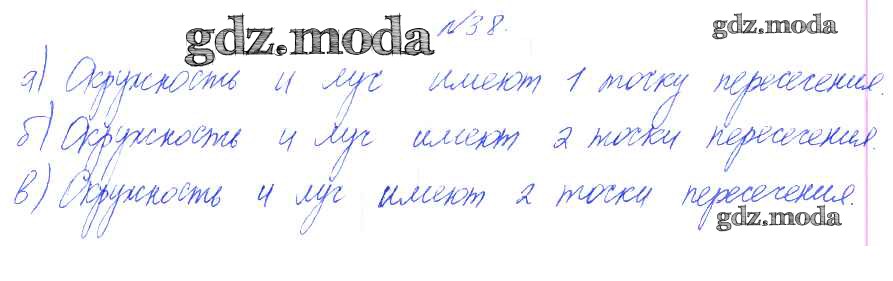 gdz.moda №38. gdz.moda
а) Окружность и луч имеют 1 точку пересечения.
б) Окружность и луч имеют 2 точки пересечения.
в) Окружность и луч имеют 2 точки пересечения.
gdz.moda